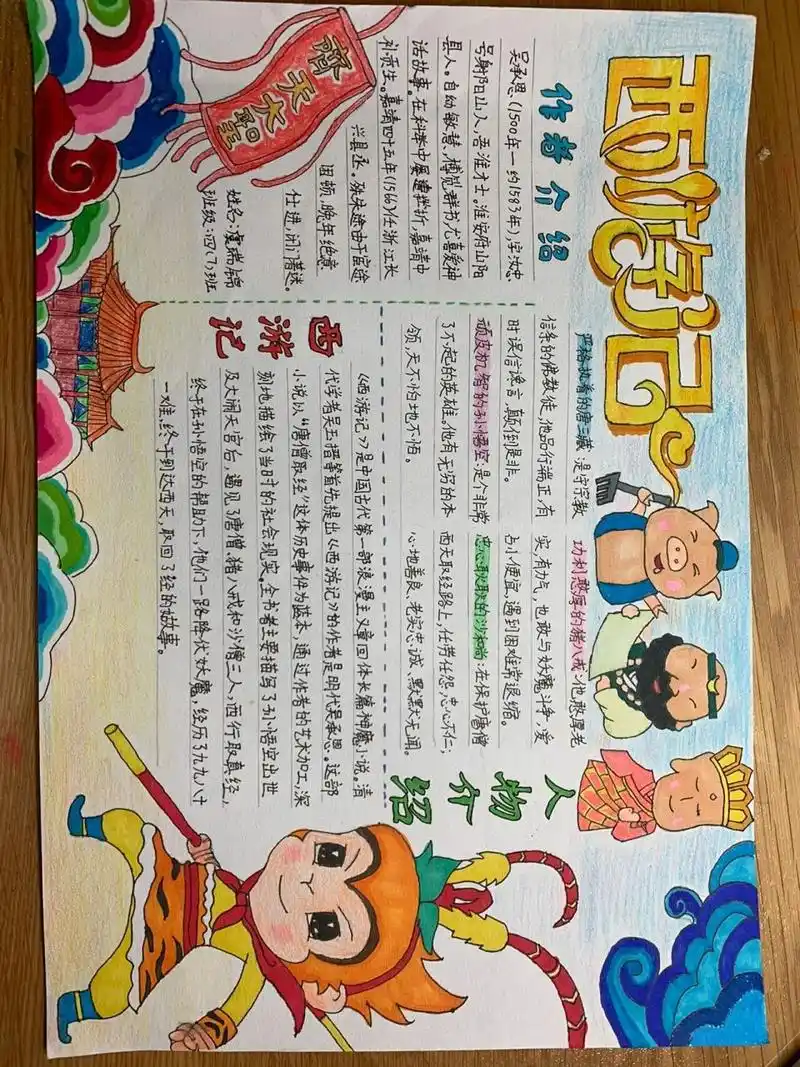 西游记
齊天大聖
作者介绍
吴承恩、(1500年一约1583年),字汝忠,
号射阳山人,吾淮才士。淮安府山阳
县人。自幼敏慧、博览群书尤喜爱神
话故事。在科举中屡遭挫折,嘉靖中
补贡生。嘉靖四十五年(1566)任浙江长
兴县丞。殊失途由于宦途
困顿,晚年绝意
仕进,闭门著述。
姓名:
班级:四(7)班
人物介绍
严格执着的唐三藏:是守宗教
信条的佛教徒,他品行端正,有
时误信谗言,颠倒是非。
顽皮机智的孙悟空:是个非常
了不起的英雄。他有无穷的本
领,天不怕地不怕。
功利憨厚的猪八戒:他憨厚老
实,有力气,也敢与妖魔斗争,爱
占小便宜,遇到困难常退缩。
忠心耿耿的沙和尚:在保护唐僧
西天取经路上,任劳任怨,忠心不仁;
心地善良、老实忠诚、默默无闻。
西游记
《西游记》是中国古代第一部浪漫主义章回体长篇神魔小说。清
代学者吴玉搢等首先提出《西游记》的作者是明代吴承恩。这部
小说以“唐僧取经”这件历史事件为蓝本,通过作者的艺术加工,深
刻地描绘了当时的社会现实。全书者主要描写了孙悟空出世
及大闹天宫后,遇见了唐僧、猪八戒和沙僧三人,西行取真经,
终于在孙悟空的帮助下,他们一路降伏妖魔,经历了九九八十
一难,终于到达西天,取回了经的故事。